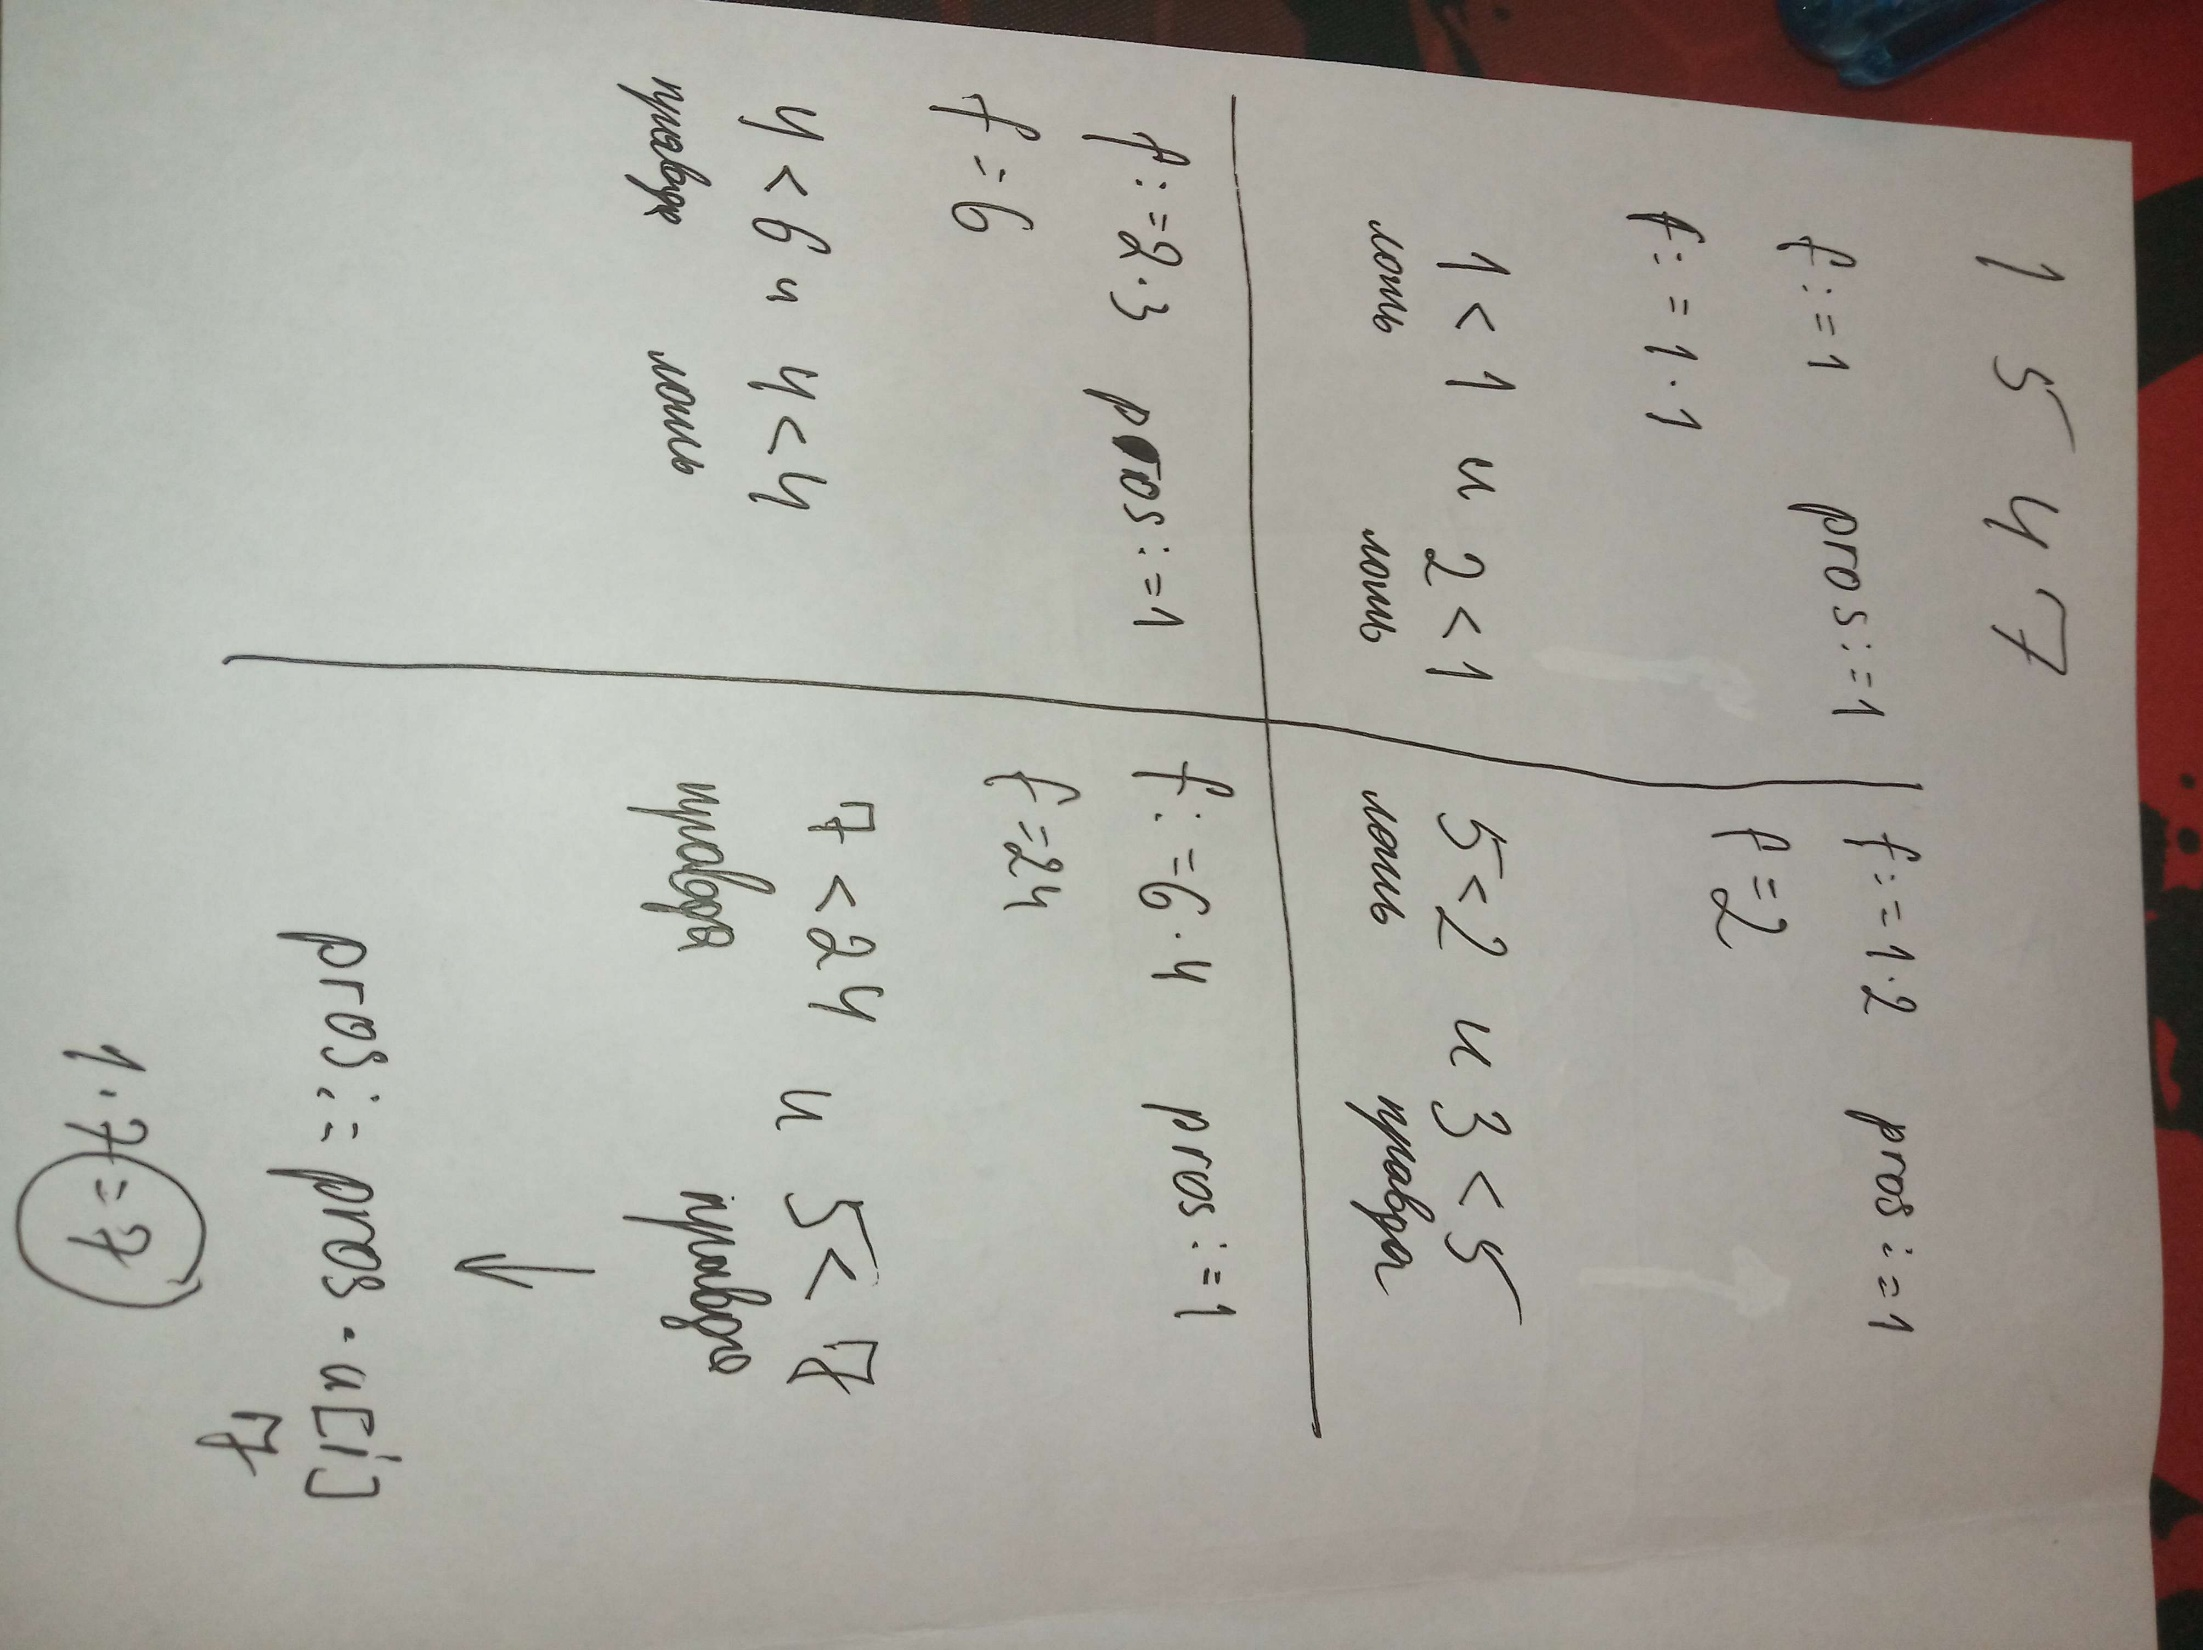 1 5 4 7
f:=1 pros:=1
f:=1·1
1<1 и 2<1
ложь ложь
f:=1·2 pros:=1
f=2
5<2 и 3<5
ложь правда
f:=2·3 pros:=1
f=6
4<6 и 4<4
правда ложь
f:=6·4 pros:=1
f=24
7<24 и 5<7
правда правда
↓
pros:=pros·u[i]
7
1·7=7